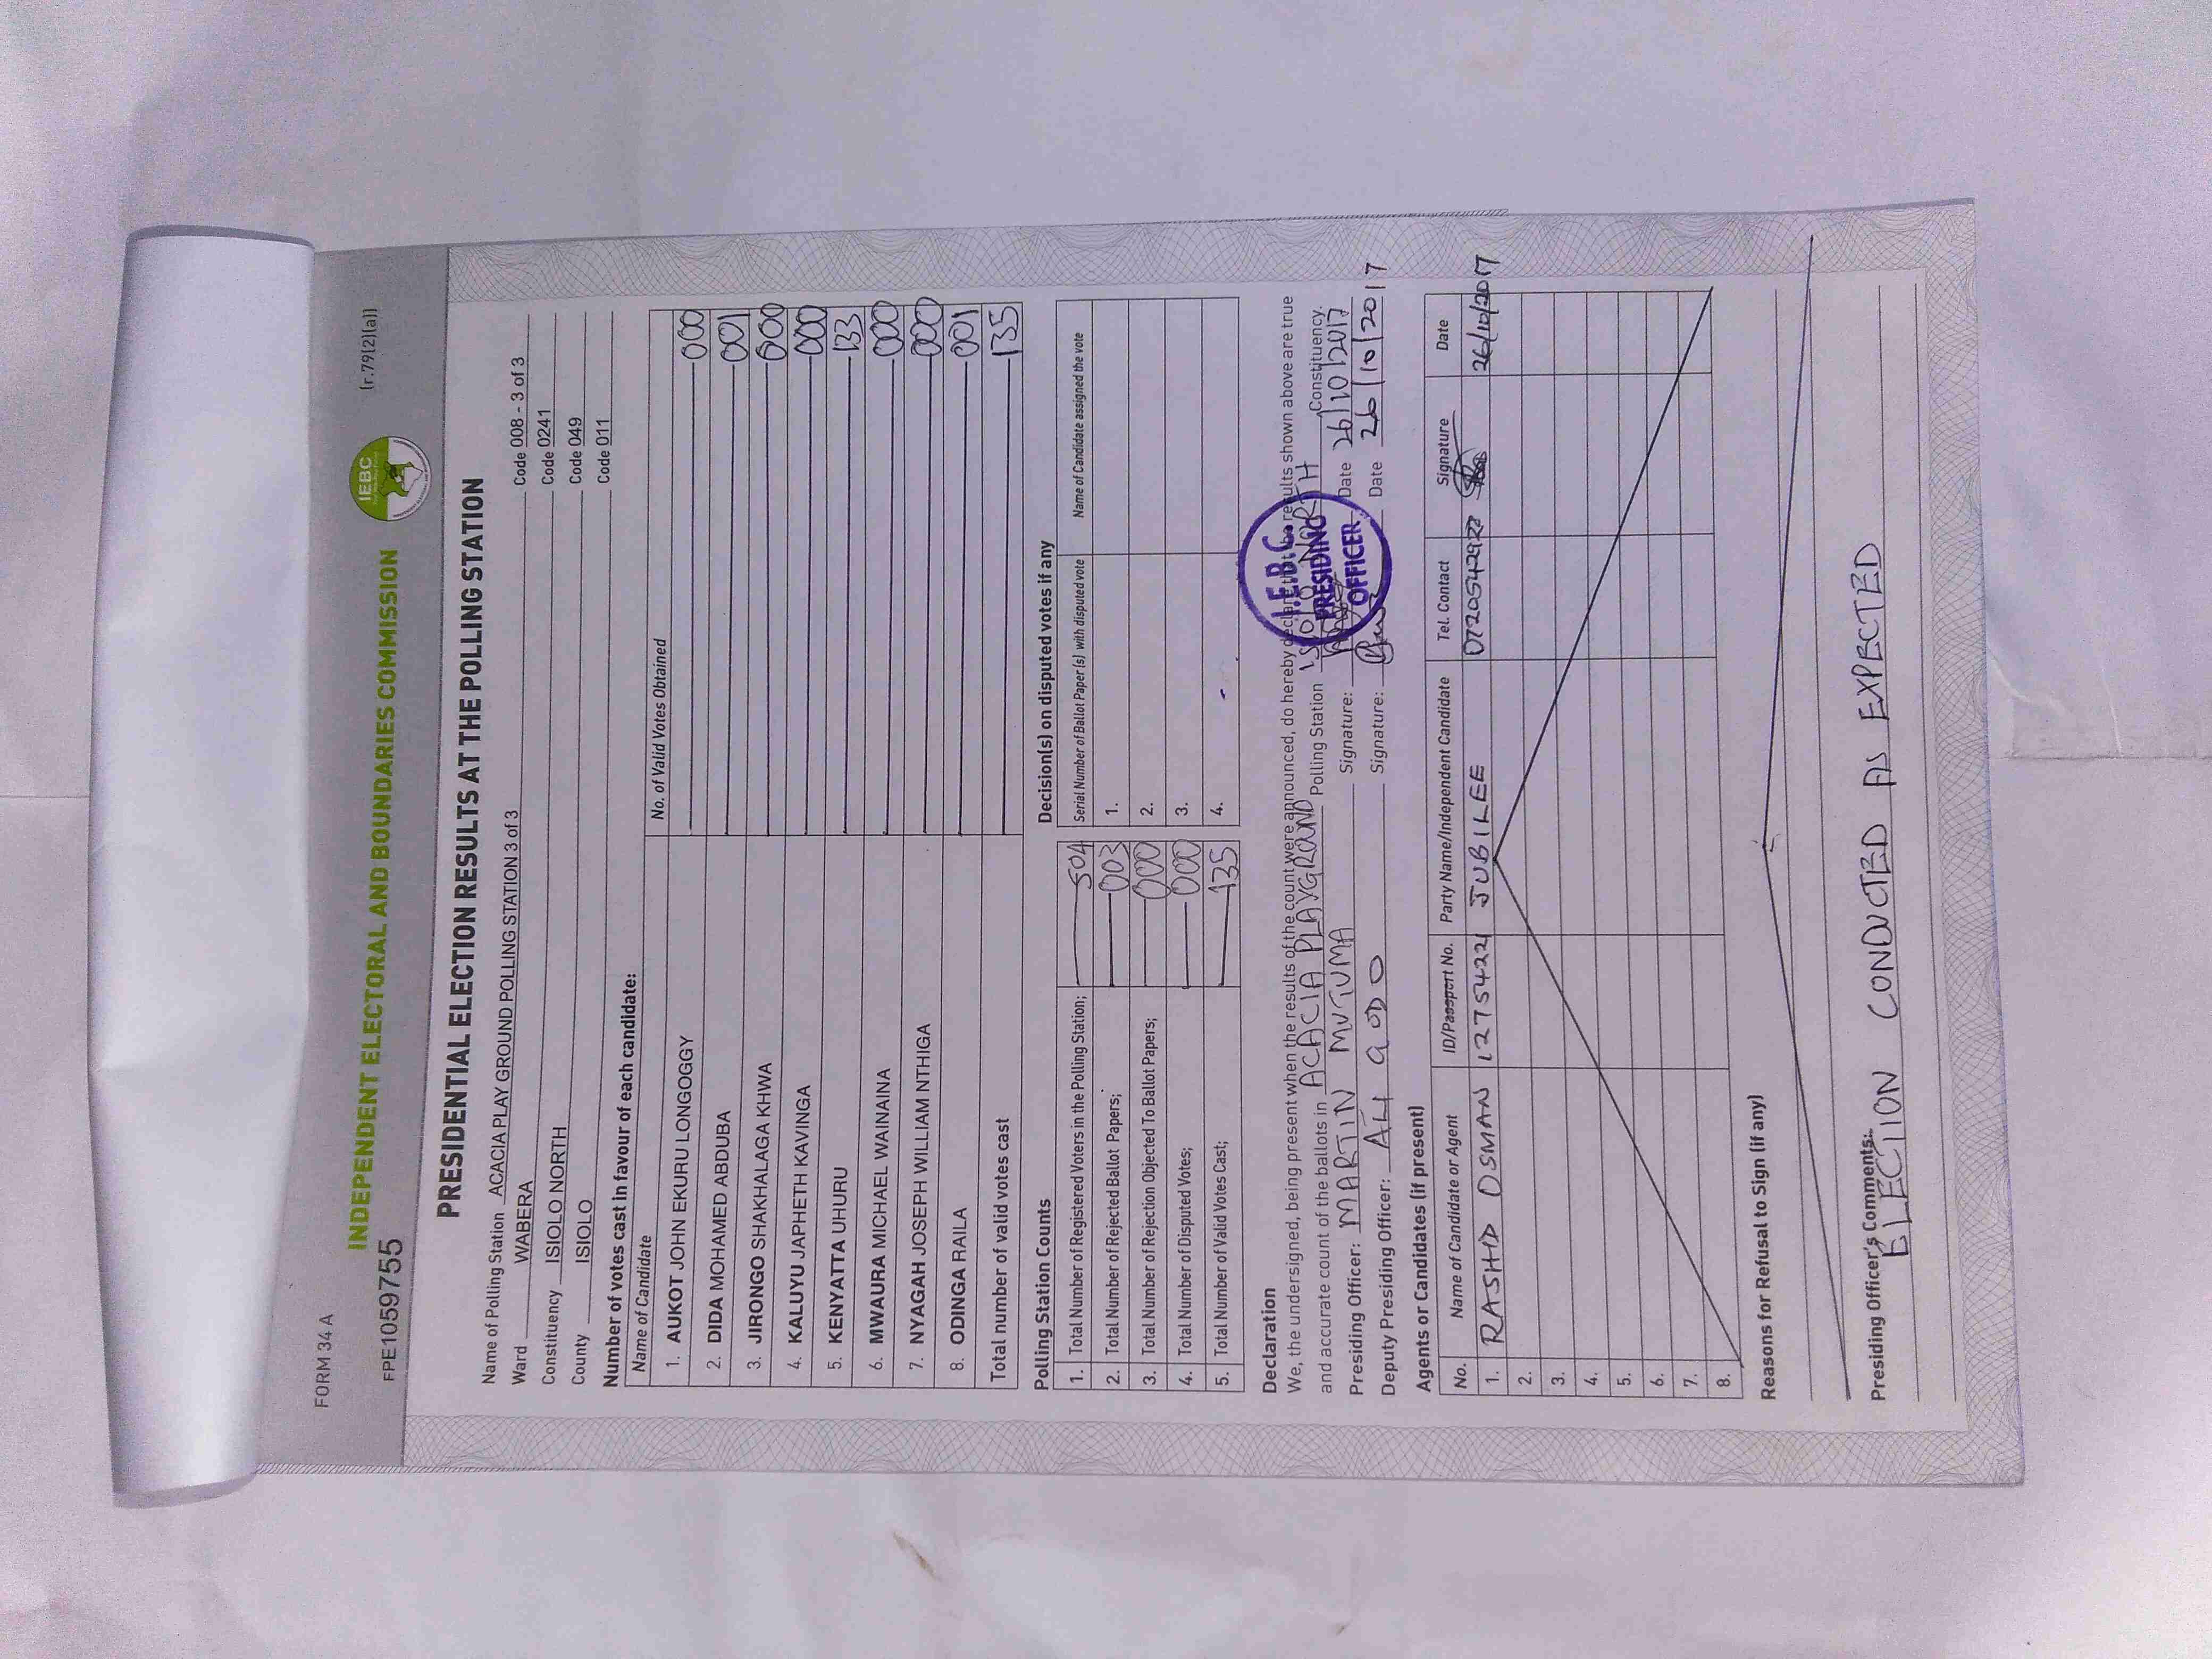 FORM 34 A
INDEPENDENT ELECTORAL AND BOUNDARIES COMMISSION
IEBC
(r.79(2)(a))
FPE1059755
PRESIDENTIAL ELECTION RESULTS AT THE POLLING STATION
Name of Polling Station ACACIA PLAY GROUND POLLING STATION 3 of 3 Code 008 - 3 of 3
Ward WABERA Code 0241
Constituency ISIOLO NORTH Code 049
County ISIOLO Code 011
Number of votes cast in favour of each candidate:
Name of Candidate No. of Valid Votes Obtained
1. AUKOT JOHN EKURU LONGOGGY 000
2. DIDA MOHAMED ABDUBA 001
3. JIRONGO SHAKHALAGA KHWA 000
4. KALUYU JAPHETH KAVINGA 000
5. KENYATTA UHURU 133
6. MWAURA MICHAEL WAINAINA 000
7. NYAGAH JOSEPH WILLIAM NTHIGA 000
8. ODINGA RAILA 001
Total number of valid votes cast 135
Polling Station Counts
1. Total Number of Registered Voters in the Polling Station; 504
2. Total Number of Rejected Ballot Papers; 003
3. Total Number of Rejection Objected To Ballot Papers; 000
4. Total Number of Disputed Votes; 000
5. Total Number of Valid Votes Cast; 135
Decision(s) on disputed votes if any
Serial Number of Ballot Paper (s) with disputed vote Name of Candidate assigned the vote
1.
2.
3.
4.
Declaration
We, the undersigned, being present when the results of the count were announced, do hereby declare that the results shown above are true
and accurate count of the ballots in ACACIA PLAYGROUND Polling Station ISIOLO NORTH Constituency.
Presiding Officer: MARTIN MUTUMA Signature: Date 26/10/2017
Deputy Presiding Officer: ALI GODO Signature: Date 26/10/2017
I.E.B.C.
PRESIDING
OFFICER
Agents or Candidates (if present)
No. Name of Candidate or Agent ID/Passport No. Party Name/Independent Candidate Tel. Contact Signature Date
1. RASHID OSMAN 12754221 JUBILEE 0720542922 26/10/2017
2.
3.
4.
5.
6.
7.
8.
Reasons for Refusal to Sign (if any)
Presiding Officer's Comments:
ELECTION CONDUCTED AS EXPECTED